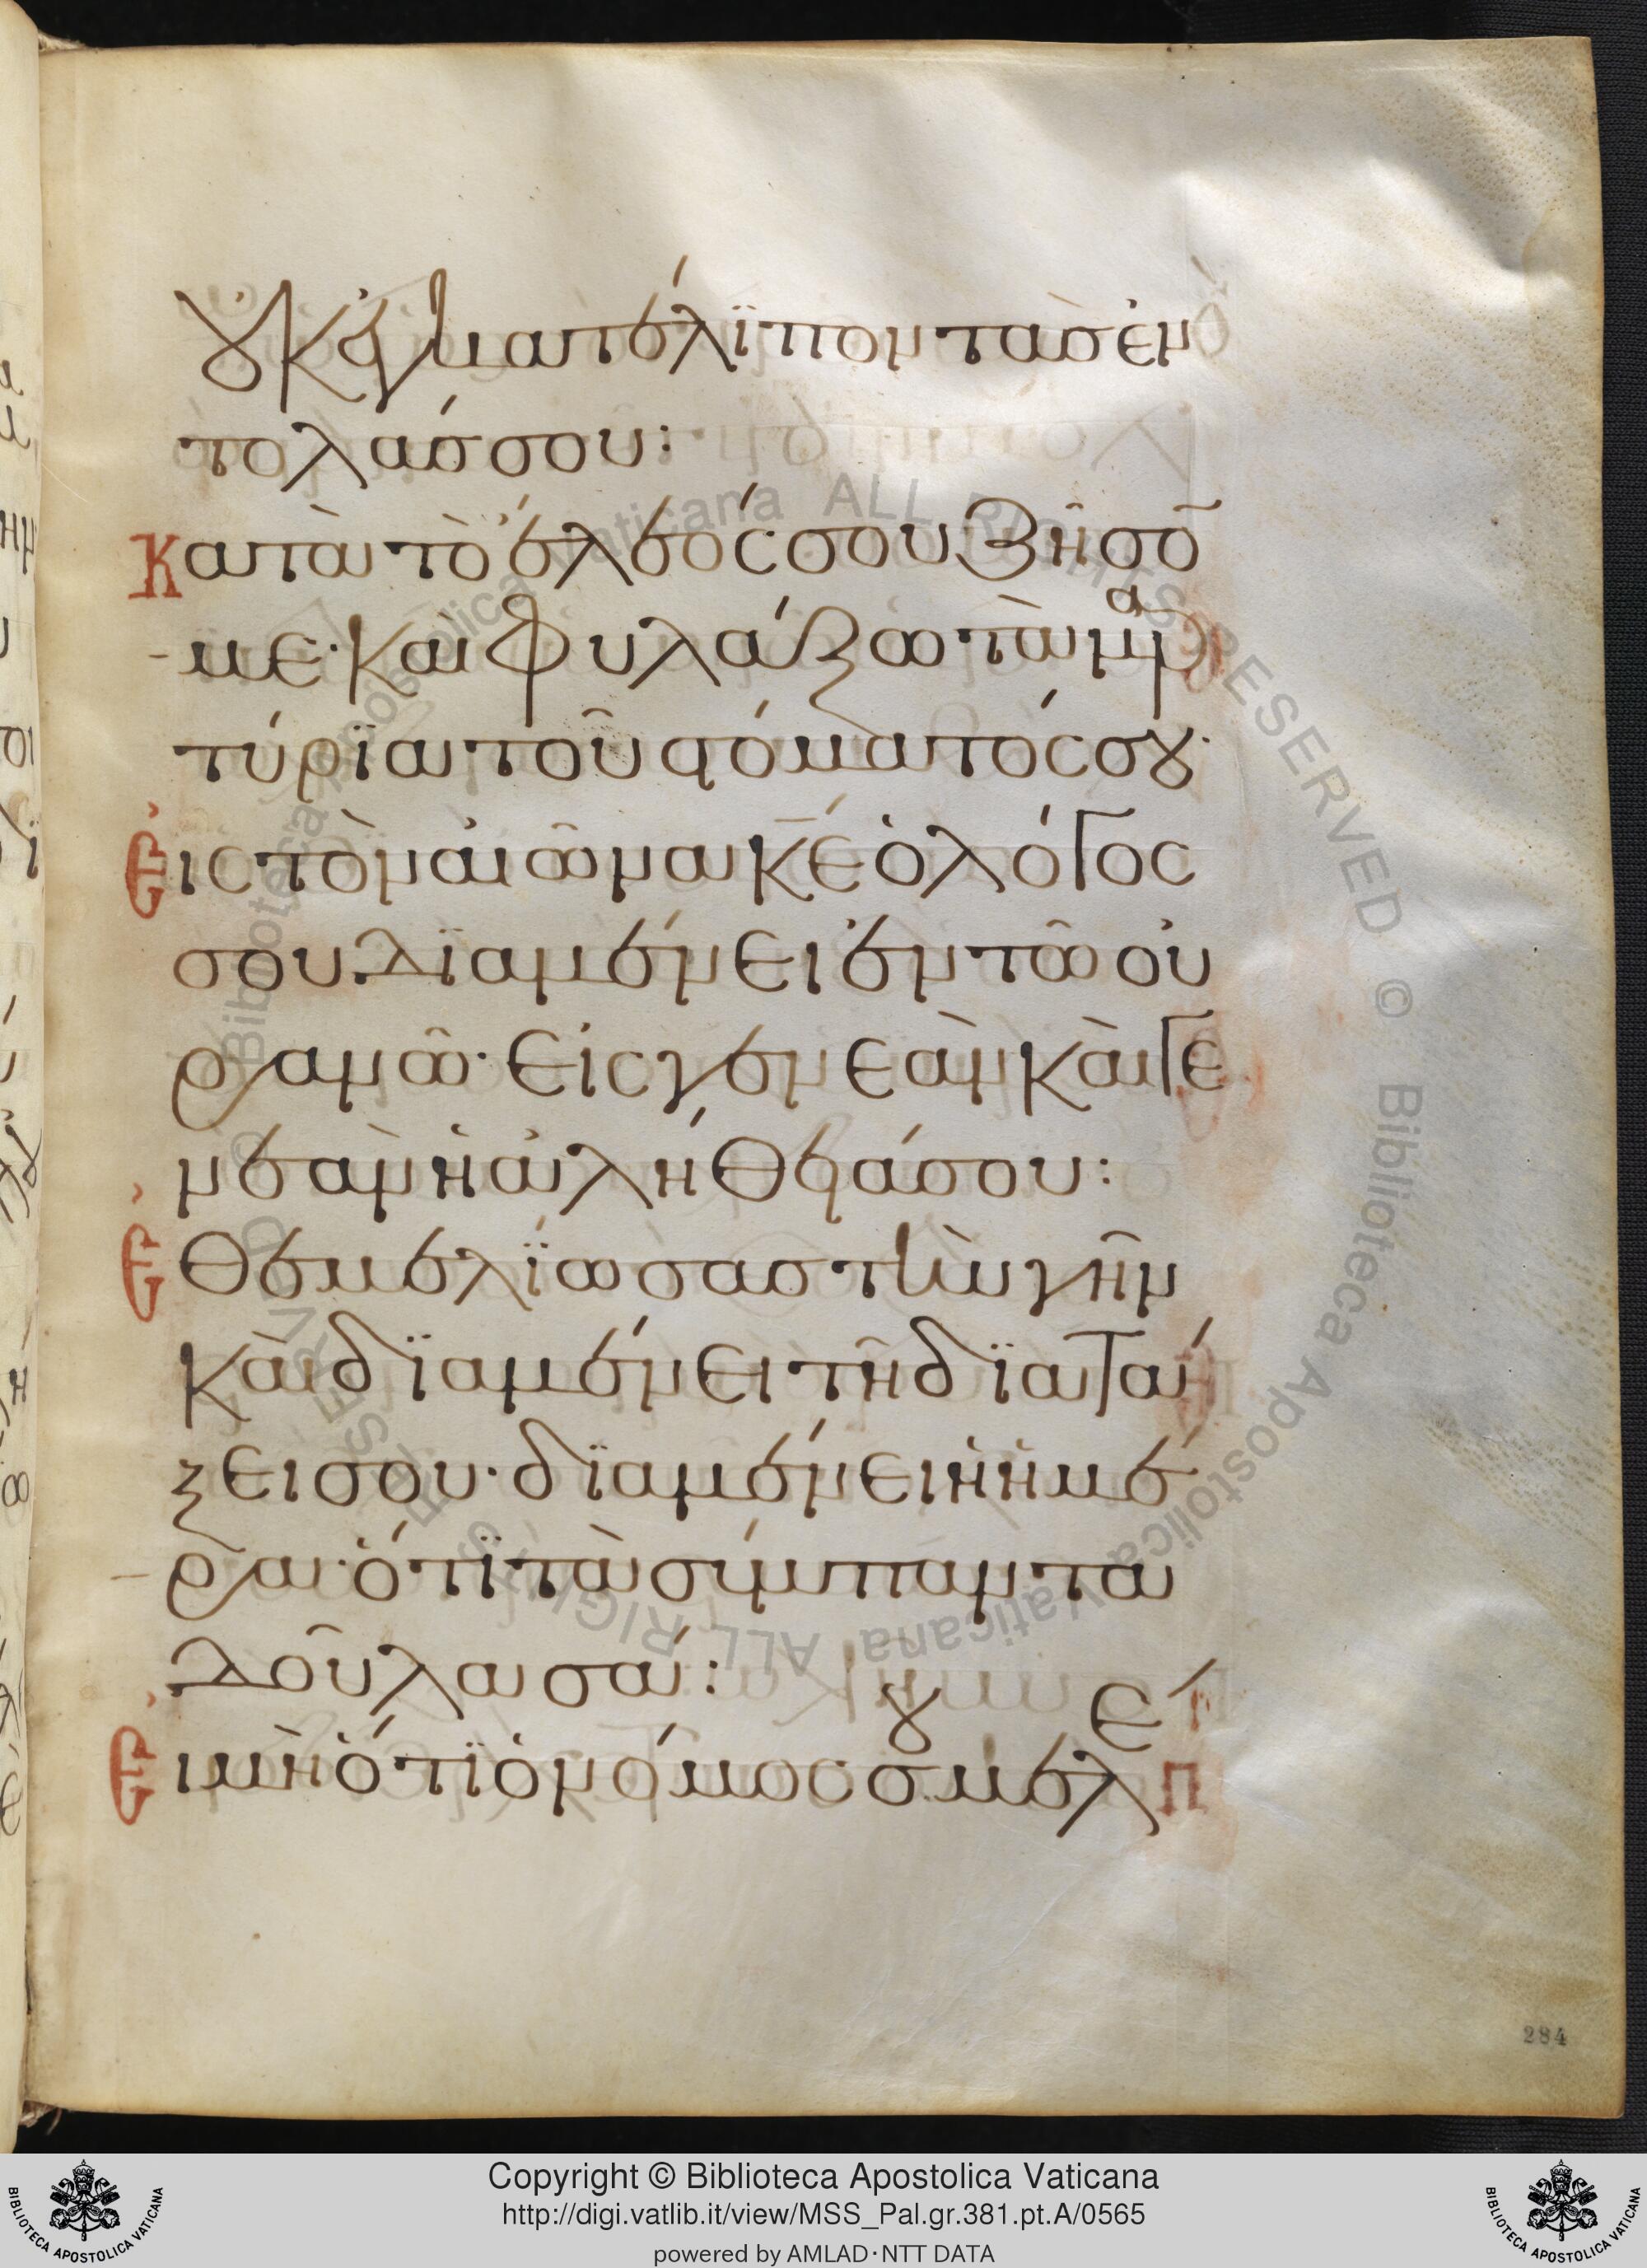 οὐκ ἐγκατέλϊπον τὰσ ἐν
τολάσ σου:
Κατὰ τὸ ἔλεός σου ζῆσό
με· καὶ φυλάξω τὰ μαρ
τύρϊα τοῦ στόματός σου·
Εἰς τὸν αἰῶνα κε ὁ λόγος
σου. δϊαμένει ἐν τῶ οὐ
ρανῶ· εἰς γενεὰν καὶ γε
νεὰν ἡ ἀλήθειά σου:
Ἐθεμελΐωσασ τὴν γῆν
καὶ δϊαμένει τῆ δϊατά
ξει σου· δϊαμένει ἡ ἡμέ
ρα· ὅτϊ τὰ σύμπαντα
δοῦλα σά:
Εἰ μὴ ὅτϊ ὁ νόμος σου μελέ
Copyright © Biblioteca Apostolica Vaticana
http://digi.vatlib.it/view/MSS_Pal.gr.381.pt.A/0565
powered by AMLAD·NTT DATA
284
BIBLIOTECA APOSTOLICA VATICANA
BIBLIOTECA APOSTOLICA VATICANA